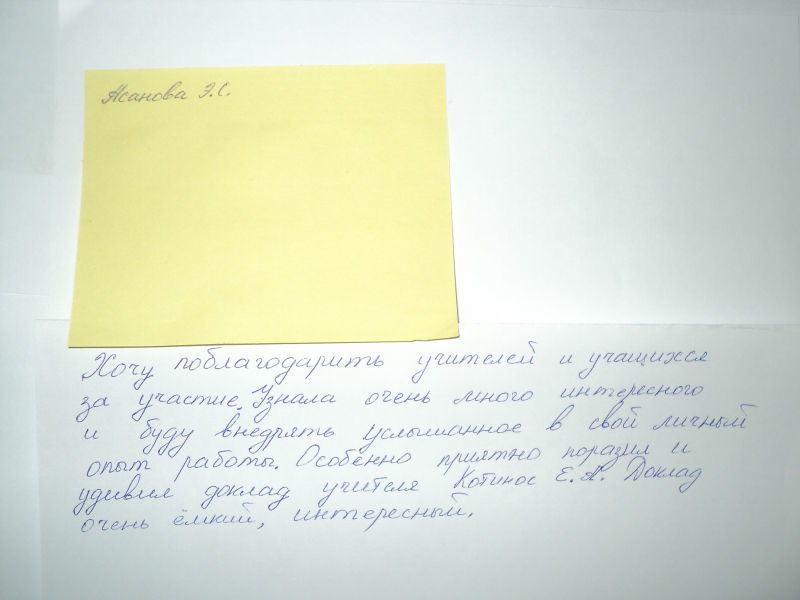 Асанова Э.С.
Хочу поблагодарить учителей и учащихся
за участие. Узнала очень много интересного
и буду внедрять услышанное в свой личный
опыт работы. Особенно приятно поразил и
удивил доклад учителя Котинос Е.А. Доклад
очень ёмкий, интересный.